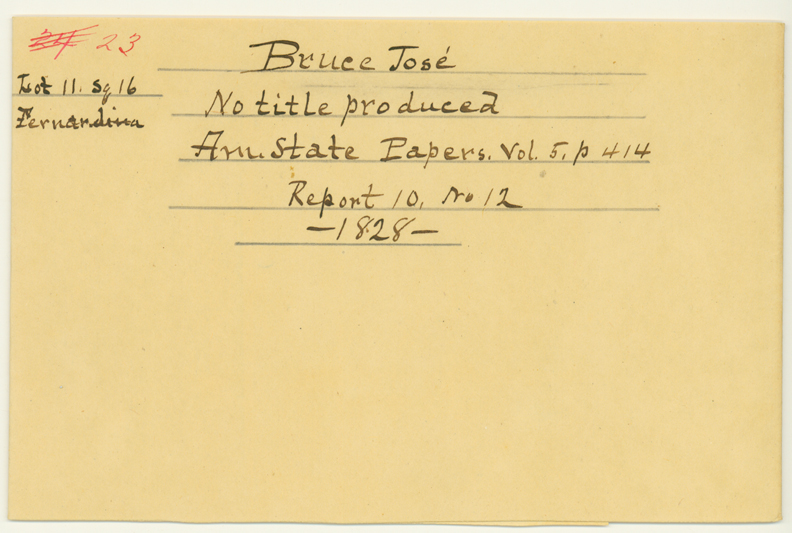 23
Bruce José
Lot 11. Sq 16
Fernandina
No title produced
Am. State Papers. Vol. 5, p 414
Report 10, No 12
—1828—